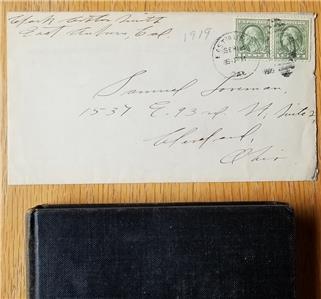 Clark Ashton Smith
East Auburn, Cal.
1919
Samuel Loveman,
1537 E. 93rd St, Suite 2,
Cleveland,
Ohio.